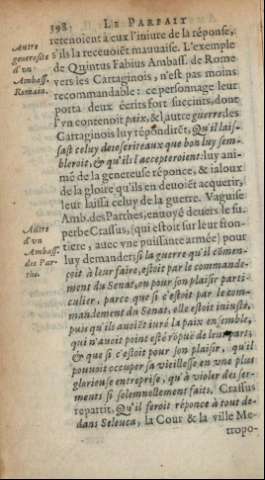 398 LE PARFAIT
retenoient à eux l'iniure de la réponse,
s'ils la receuoiẽt mauuaise. L'exemple
de Quintus Fabius Ambass. de Rome
vers les Cartaginois, n'est pas moins
recommandable: ce personnage leur
porta deux écrits fort succints, dont
l'vn contenoit paix, & l'autre guerre: les
Cartaginois luy répondirẽt, Qu'il lais-
sast celuy des escriteaux que bon luy sem-
bleroit, & qu'ils l'accepteroient: luy ani-
mé de la genereuse réponce, & ialoux
de la gloire qu'ils en deuoiẽt acquerir,
leur laissa celuy de la guerre. Vaguise
Amb. des Parthes, enuoyé deuers le su-
perbe Crassus, (qui estoit sur leur fron-
tiere, auec vne puissante armée) pour
luy demander; si la guerre qu'il cõmen-
çoit à leur faire, estoit par le commande-
ment du Senat, ou pour son plaisir parti-
culier, parce que si c'estoit par le com-
mandement du Senat, elle estoit iniuste,
puis qu'ils auoiẽt iuré la paix ensemble,
qui n'auoit point esté rõpuë de leur part;
& que si c'estoit pour son plaisir, qu'il
pouuoit occuper sa vieillesse en vne plus
glorieuse entreprise, qu'à violer des ser-
ments si solemnellement faits, Crassus
repartit, Qu'il feroit réponce à tout de-
dans Seleuca, la Cour & la ville Me-
tropo-
Autre
generosité
d'vn
Ambass.
Romain.
Autre
d'vn
Ambass.
des Par-
the.